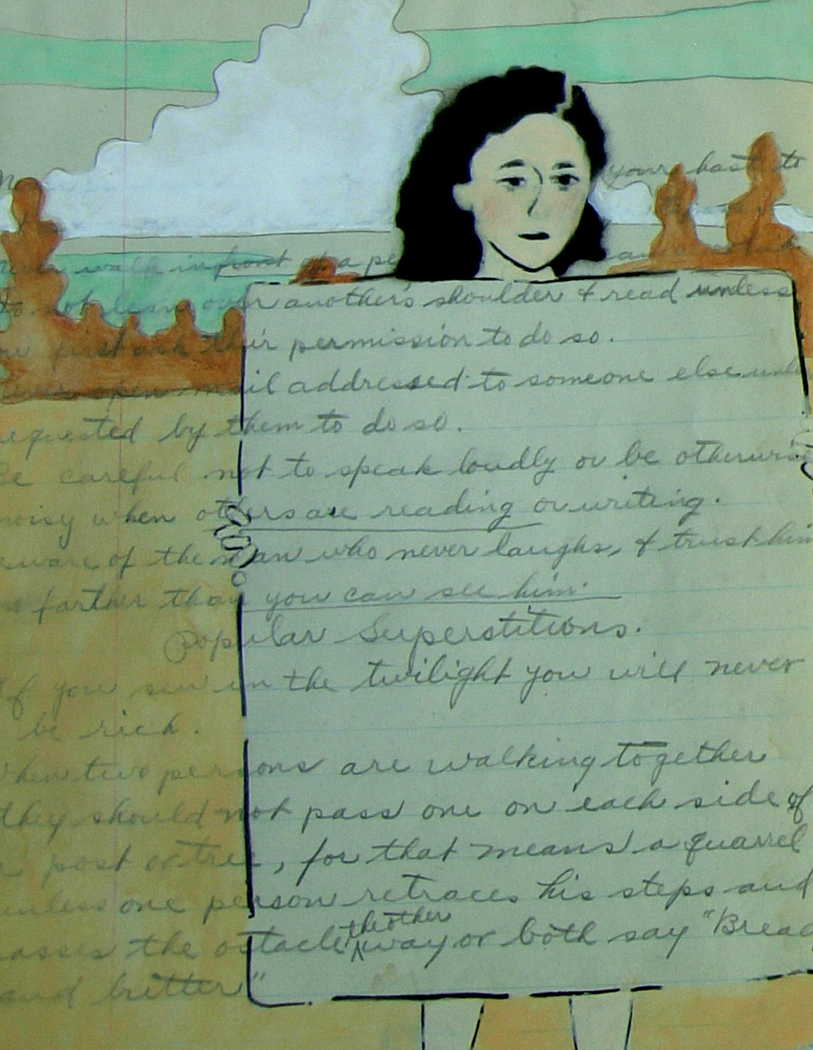 your hat to
never walk in front of a pe
to not lean over another's shoulder & read unless
their permission to do so.
mail addressed to someone else unl
requested by them to do so.
Be careful not to speak loudly or be otherwise
noisy when others are reading or writing.
eware of the man who never laughs, & trust him
no farther than you can see him.
Popular Superstitions.
If you sew in the twilight you will never
be rich.
When two persons are walking together
they should not pass one on each side of
a post or tree, for that means a quarrel
unless one person retraces his steps and
passes the ostacle the other way or both say "Bread
and butter"